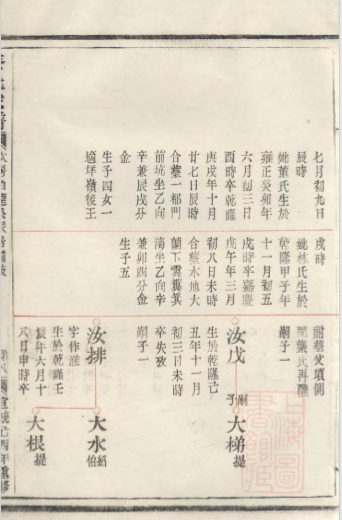 七月初九日
辰時
妣董氏生於
雍正癸卯年
六月初三日
酉時卒乾隆
庚戌年十月
廿七日辰時
合墓一都門
前坑坐乙向
辛兼辰戌分
金
生子四女一
適坪嶺後王
戌時
妣林氏生於
乾隆甲子年
十一月初五
戌時卒嘉慶
戊午年三月
初八日未時
合墓水地大
蘭下雲糞箕
蕩坐乙向辛
兼卯酉分金
生子五
祔墓父墳側
葉氏再醮
嗣子一
汝戊
嗣子
大梯
提
生於乾隆乙
丑年十一月
初三日未時
卒失攷
嗣子一
大水
紹伯
汝排
字作謹
生於乾隆壬
辰年六月十
八日申時卒
大根
提